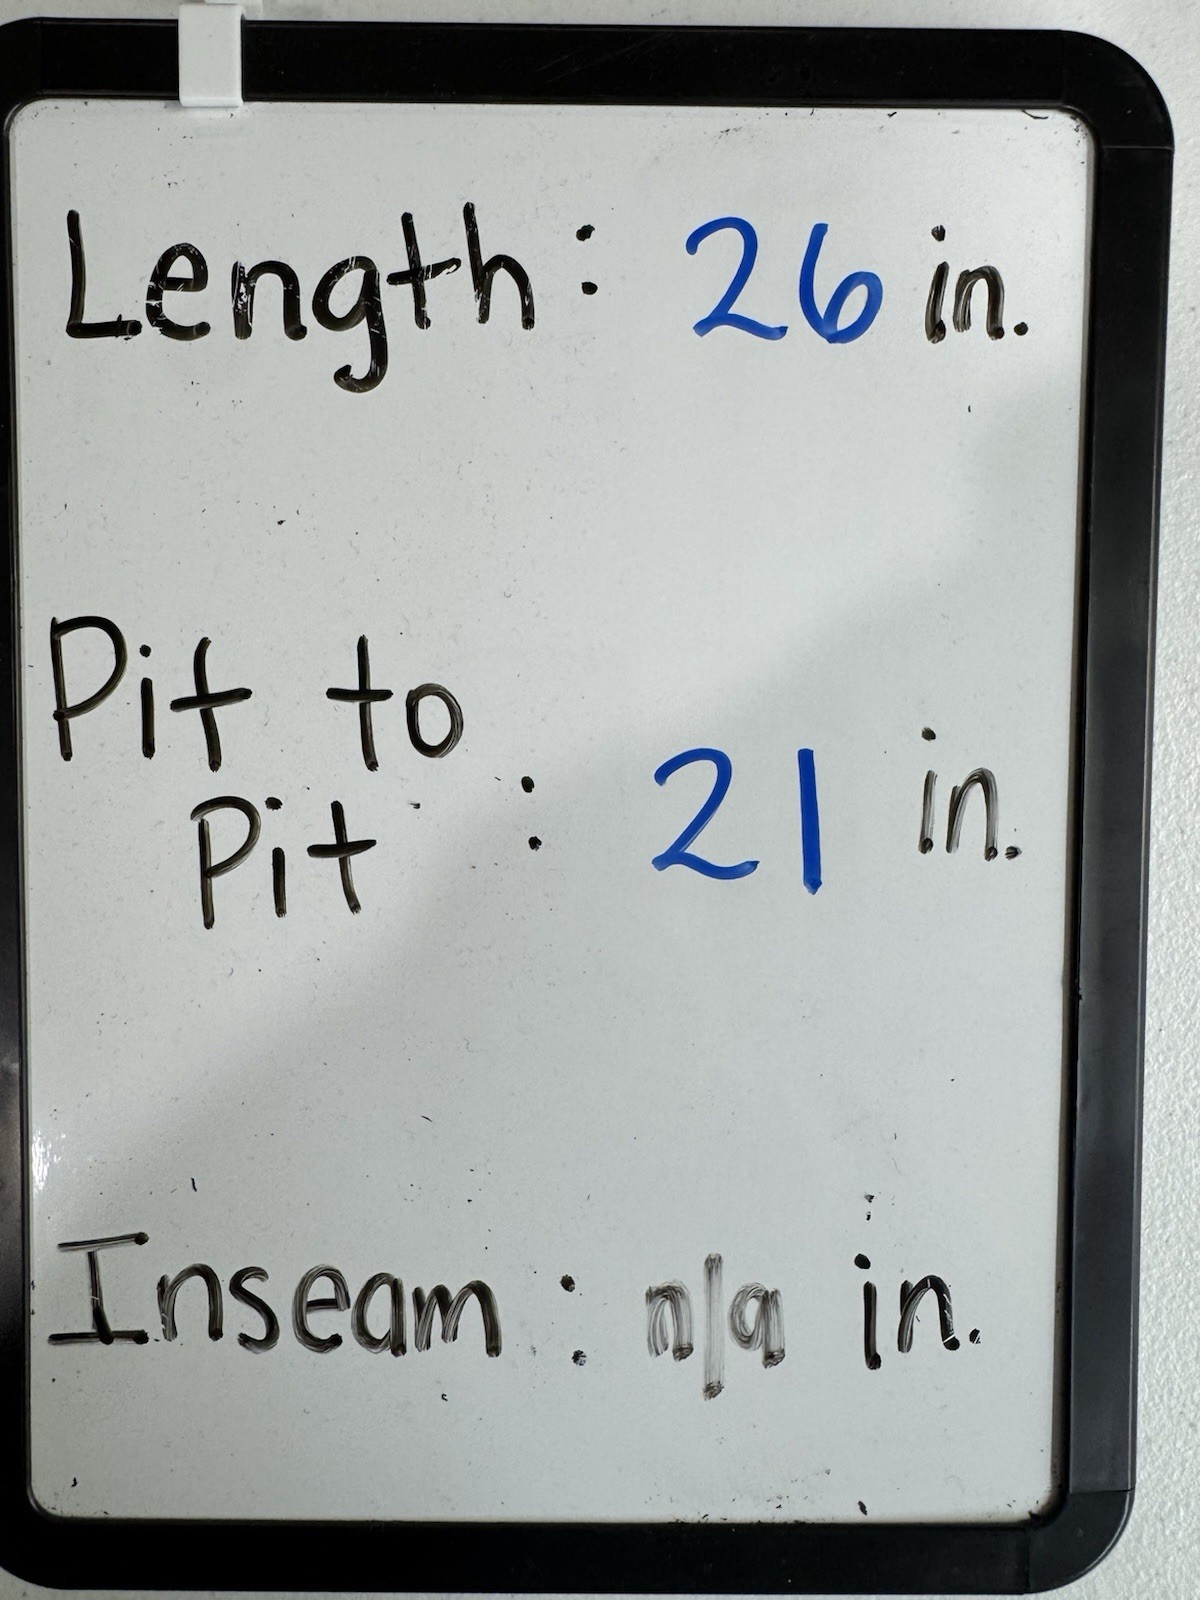 Length: 26 in.
Pit to
Pit : 21 in.
Inseam: n/a in.